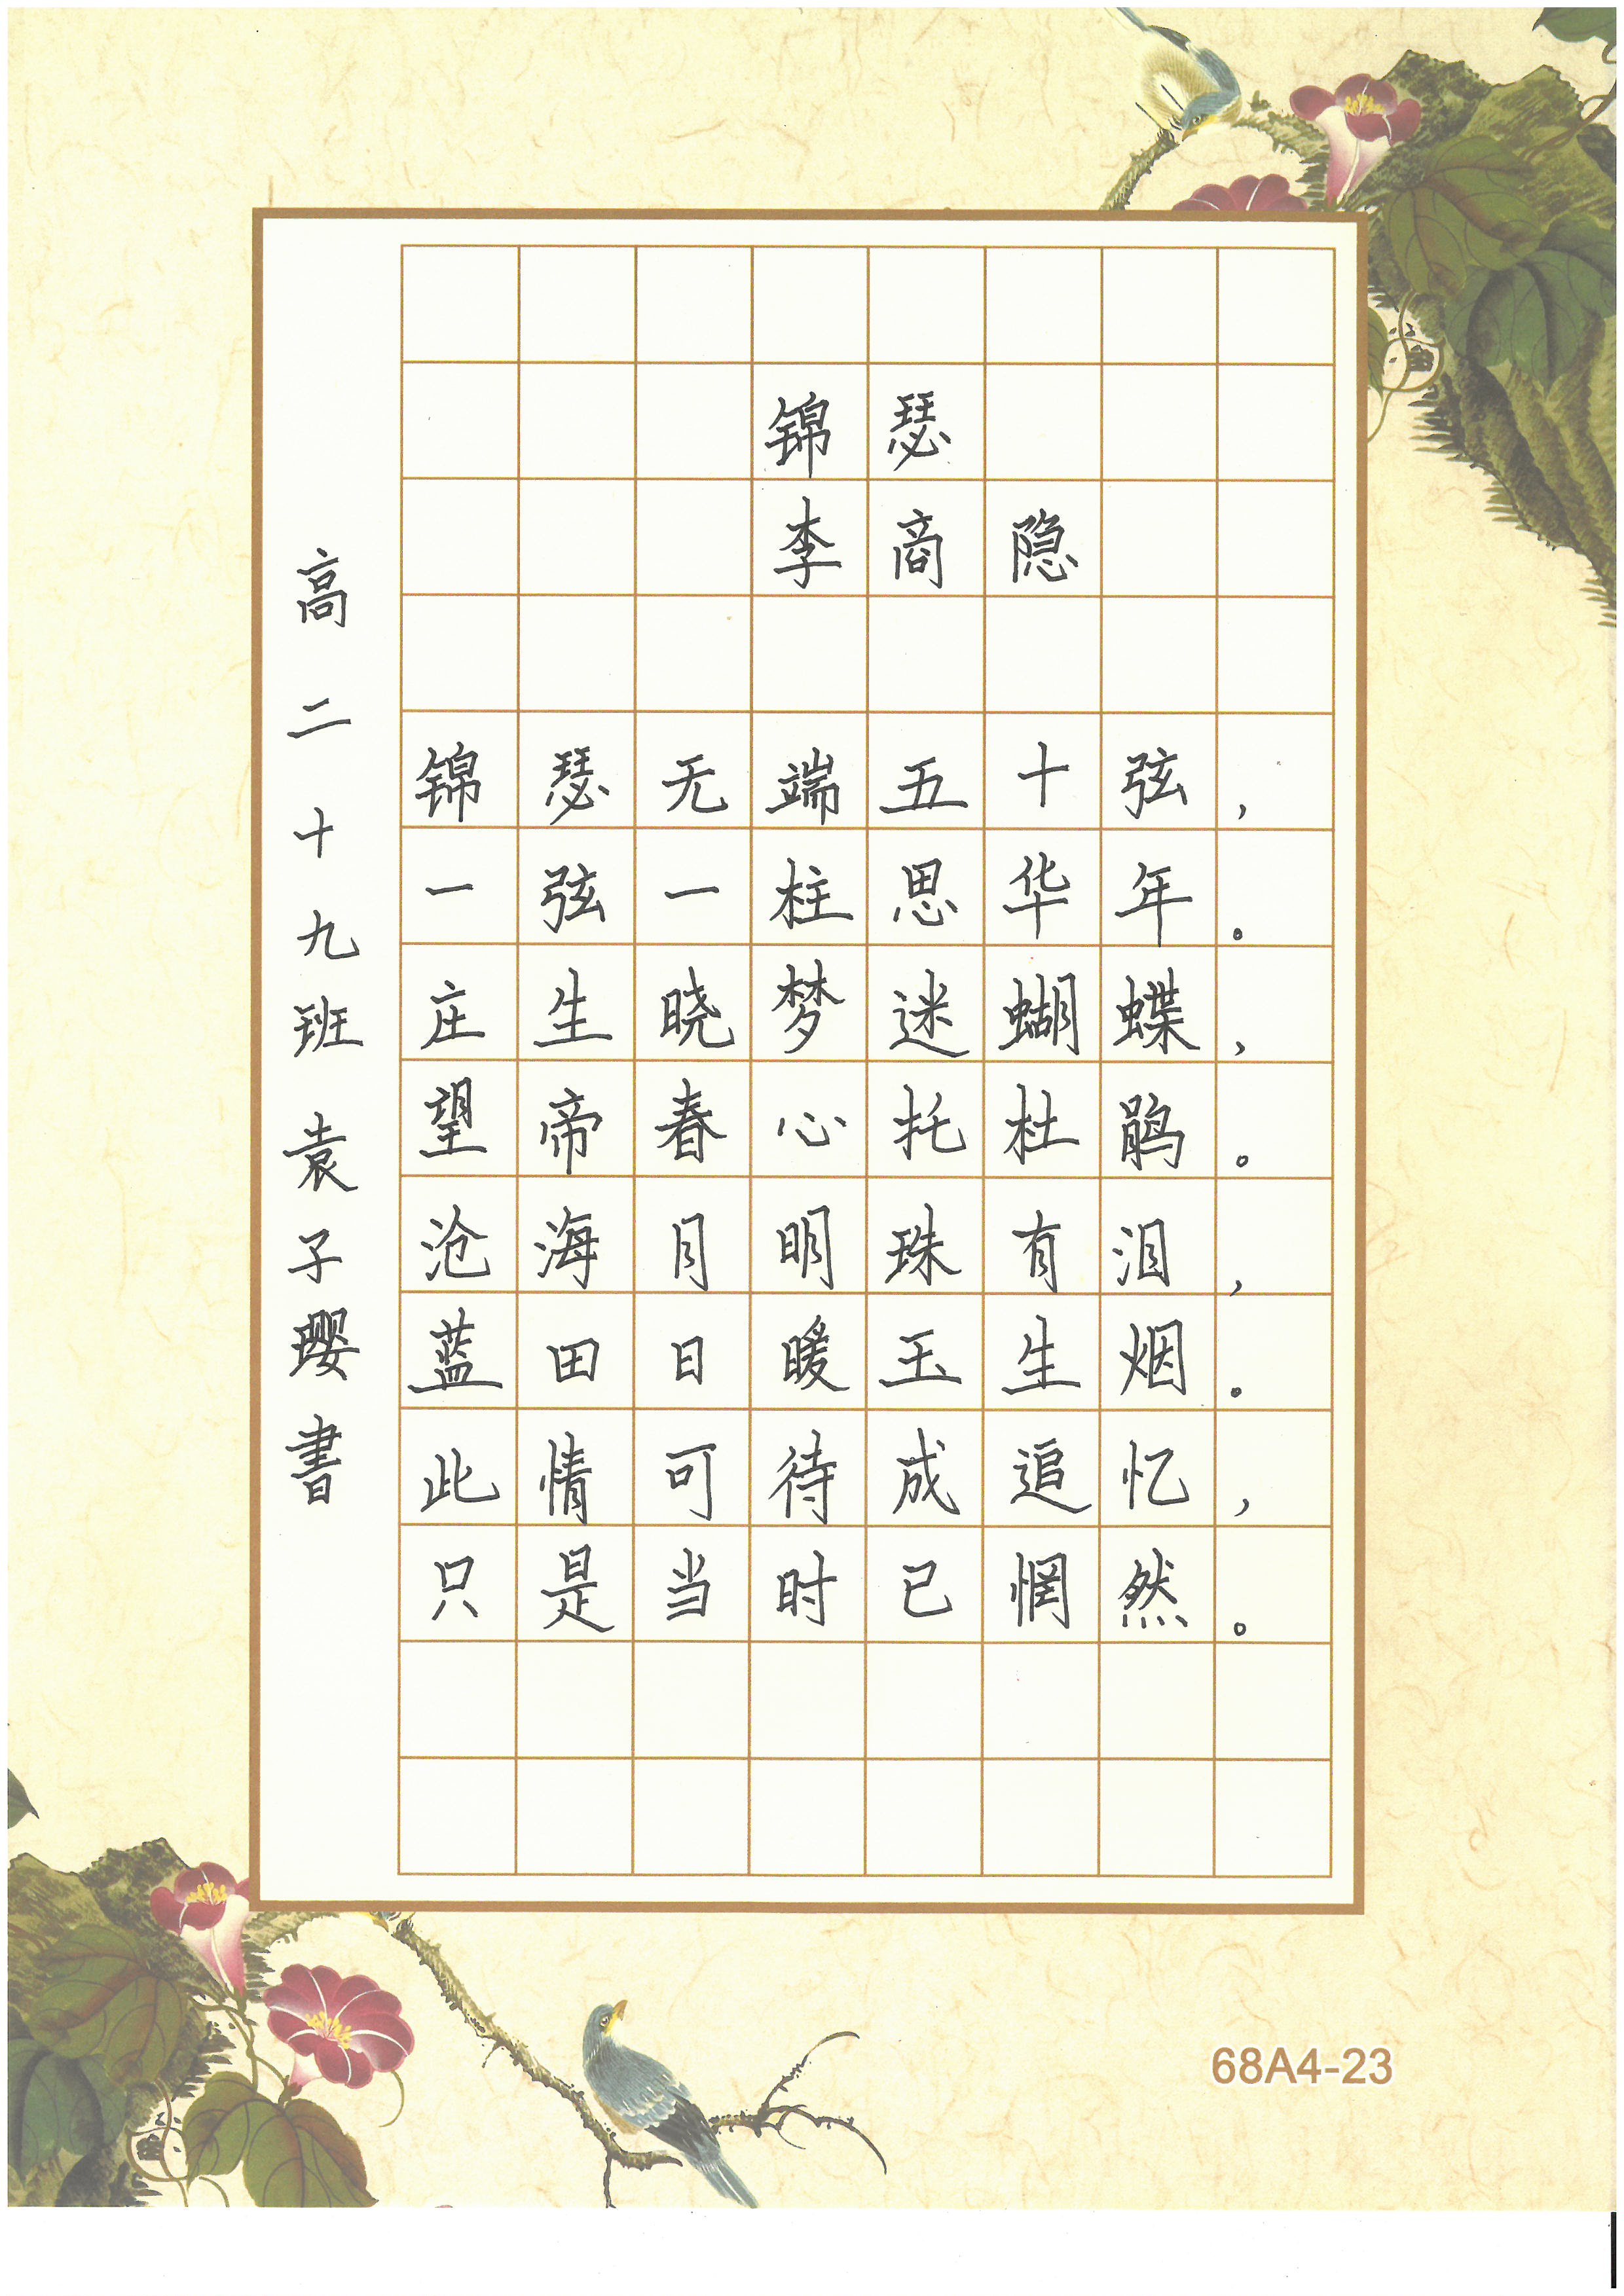 锦瑟
李商隐
锦瑟无端五十弦，
一弦一柱思华年。
庄生晓梦迷蝴蝶，
望帝春心托杜鹃。
沧海月明珠有泪，
蓝田日暖玉生烟。
此情可待成追忆，
只是当时已惘然。
高二十九班 袁子璎書
68A4-23